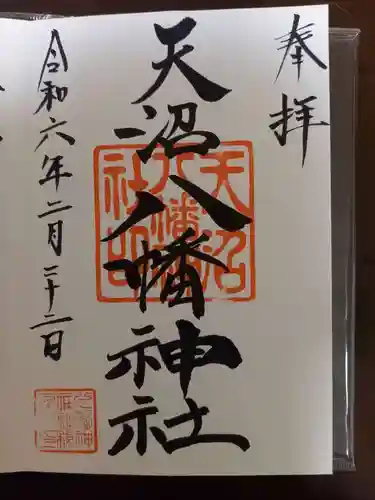 奉拝
天沼八幡神社
天沼八幡神社印
令和六年二月二十二日